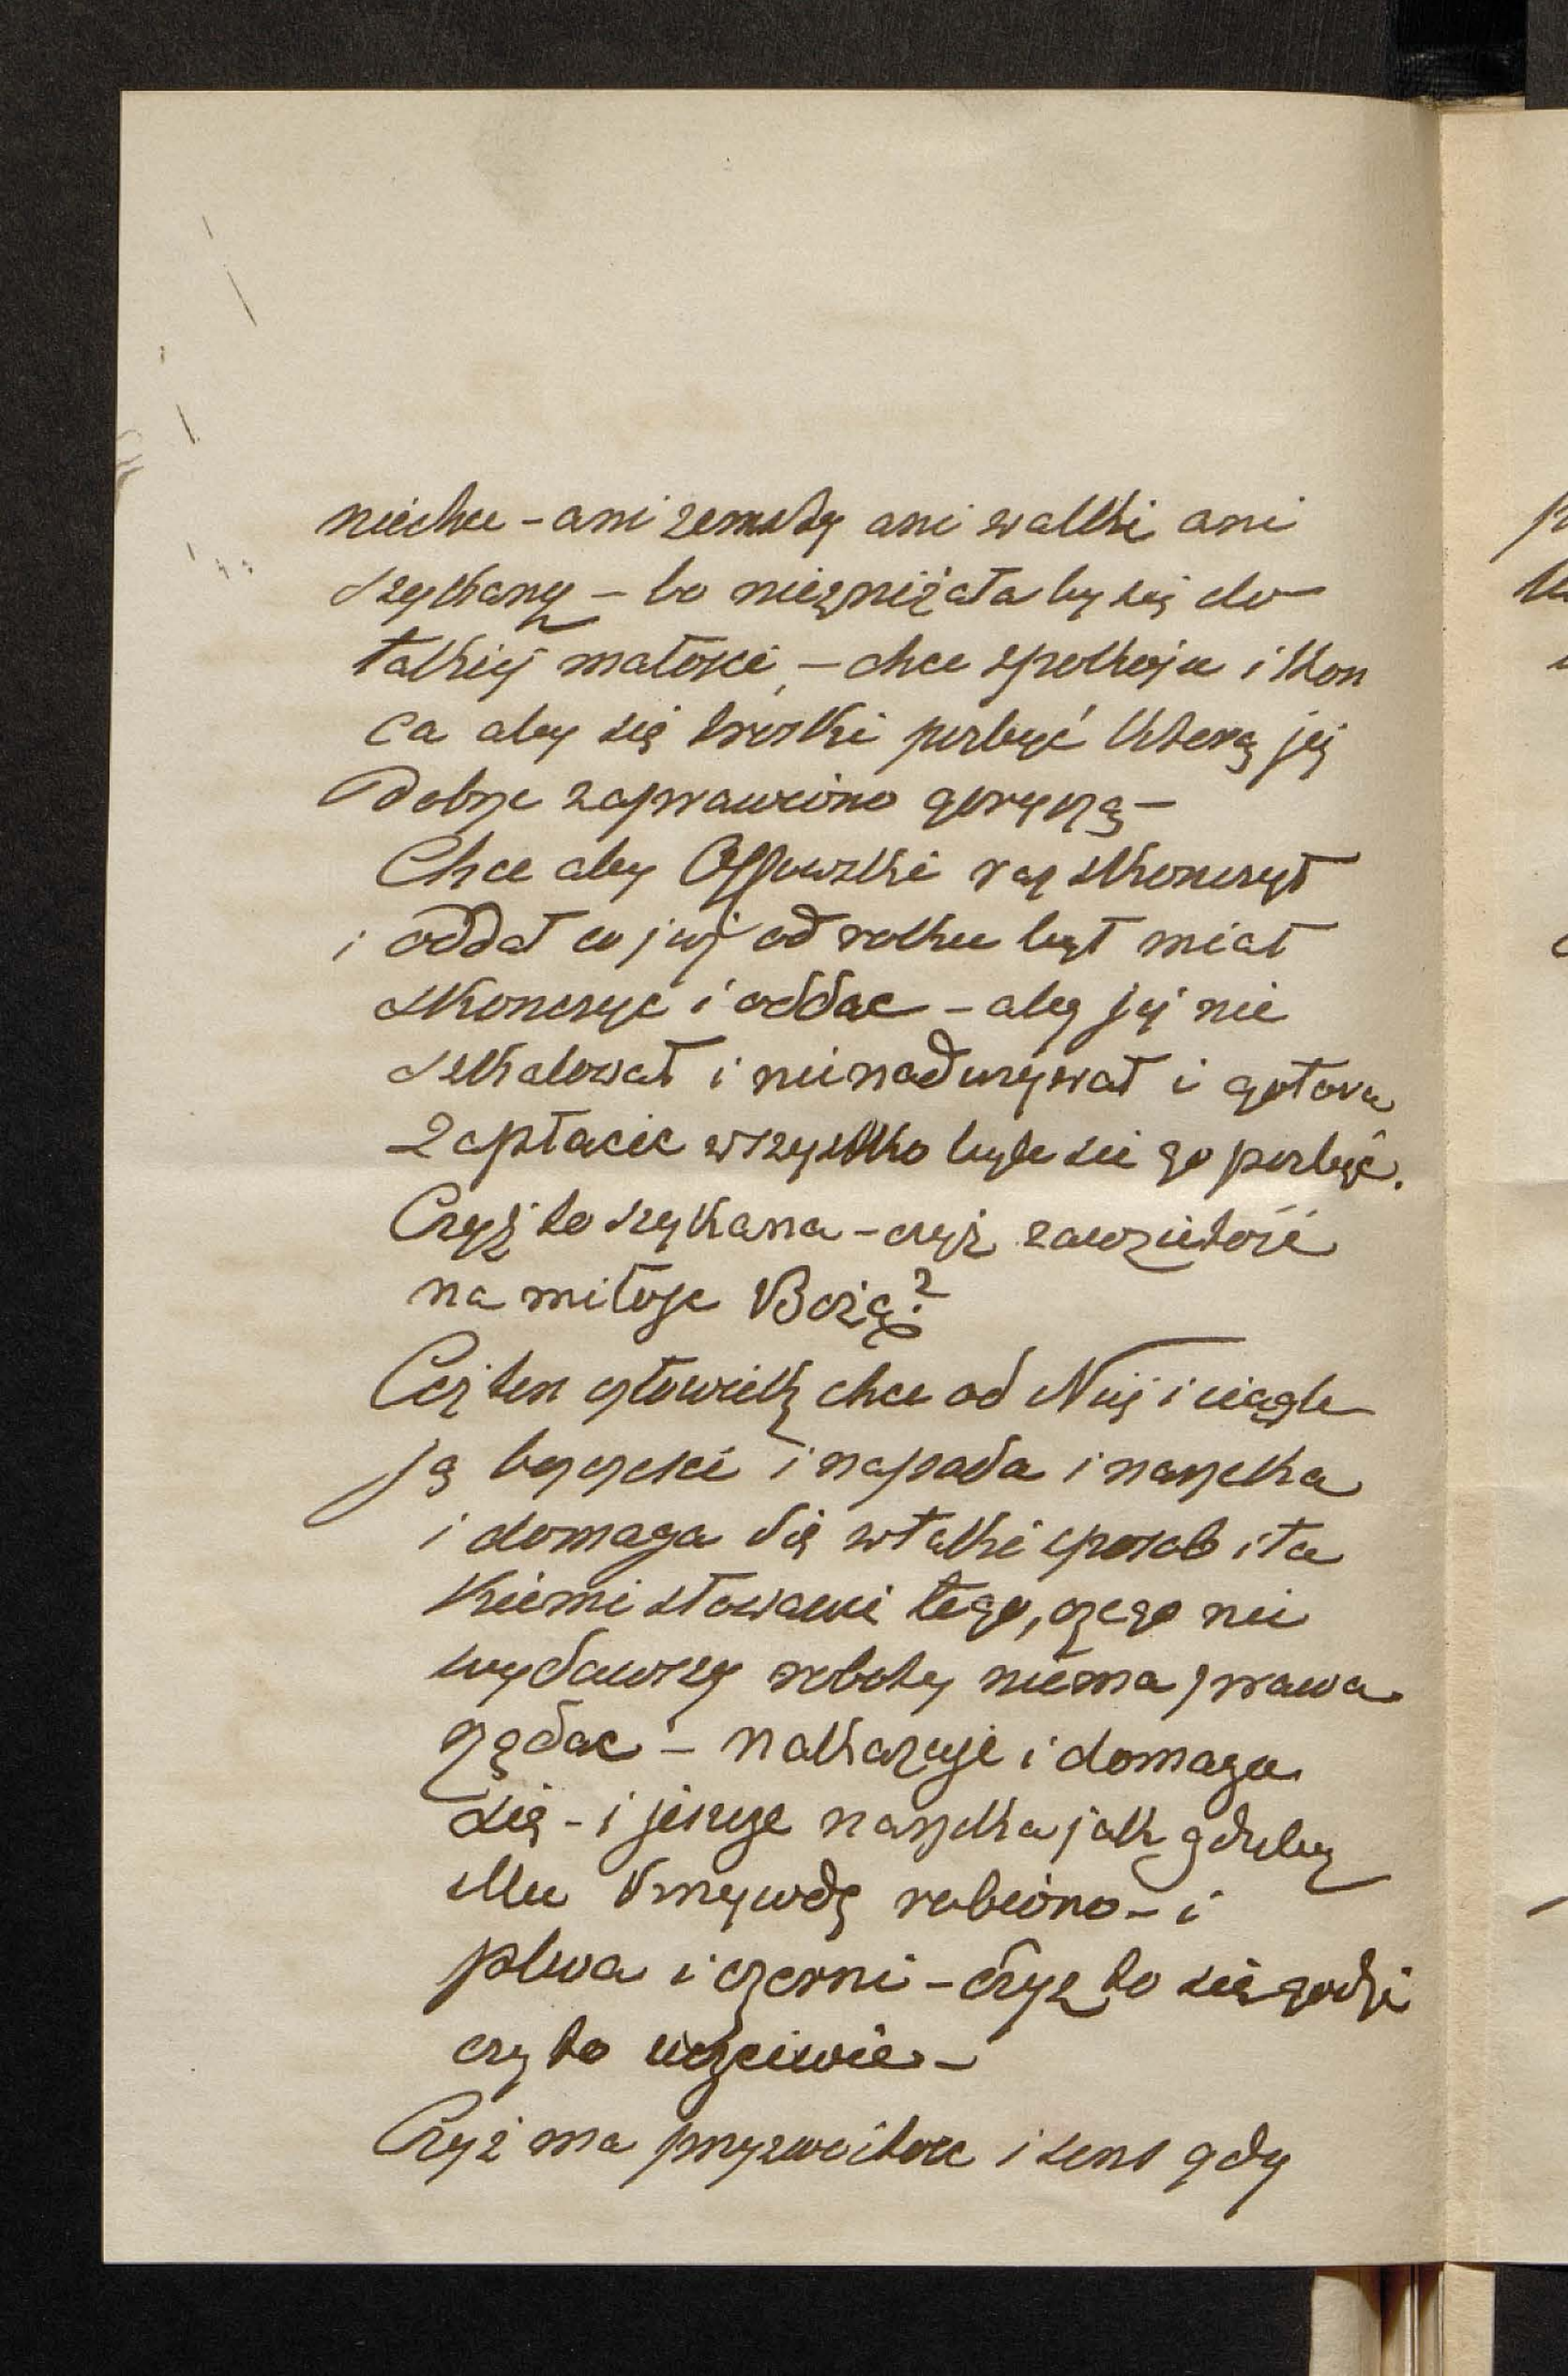 niechce - ani zemsty ani walki ani
szykany - bo niezniżała by się do
takiej małości, - chce spokoju i kon
ca aby się troski pozbyć którą jej
dobrze zaprawiono goryczą -
Chce aby Ossowski raz skonczył
i oddał co już od roku był miał
skonczyc i oddac - aby jej nie
szkalował i nienadurzywał i gotowa
zapłacic wszystko byle sie go pozbyć.
Czyż to szykana - czyż zawziętość
na miłosc Bożą?
Coż ten człowiek chce od Niej i ciągle
ją bezczesci i napada i narzeka
i domaga się w taki sposob i ta
kiemi słowami tego, czego nie
wydawszy roboty niema prawa
rządac - nakazuje i domaga
się - i jeszcze narzeka jak gdyby
Mu krzywdę robiono - i
plwa i czerni - czyż to się godzi
czy to uczciwie -
Czyż ma przyzwoitosc i sens gdy